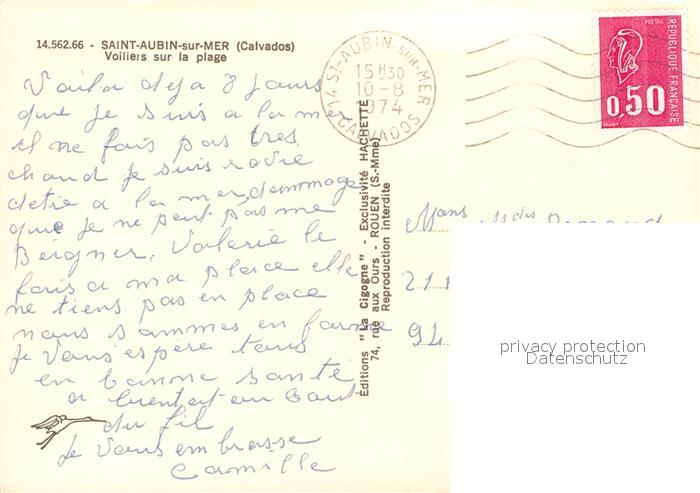 14.562.66 - SAINT-AUBIN-sur-MER (Calvados)
Voiliers sur la plage
Voila deja 8 jours
que je suis a la mer
il ne fais pas tres
chaud je suis ravie
detre a la mer, dommage
que je ne peut pas me
Beigner, Valerie le
fais a ma place elle
ne tiens pas en place
nous sommes en forme
je Vous espère tous
en bonne santé
a bientot au bout
du fil
je Vous embrasse
Camille
Editions "La Cigogne" - Exclusivité HACHETTE
74, rue aux Ours - ROUEN (S.-Mme)
Reproduction interdite
14 ST-AUBIN-SUR-MER
15 H 30
10-8
1974
CALVADOS
POSTES
REPUBLIQUE FRANÇAISE
0,50
21
94
privacy protection
Datenschutz